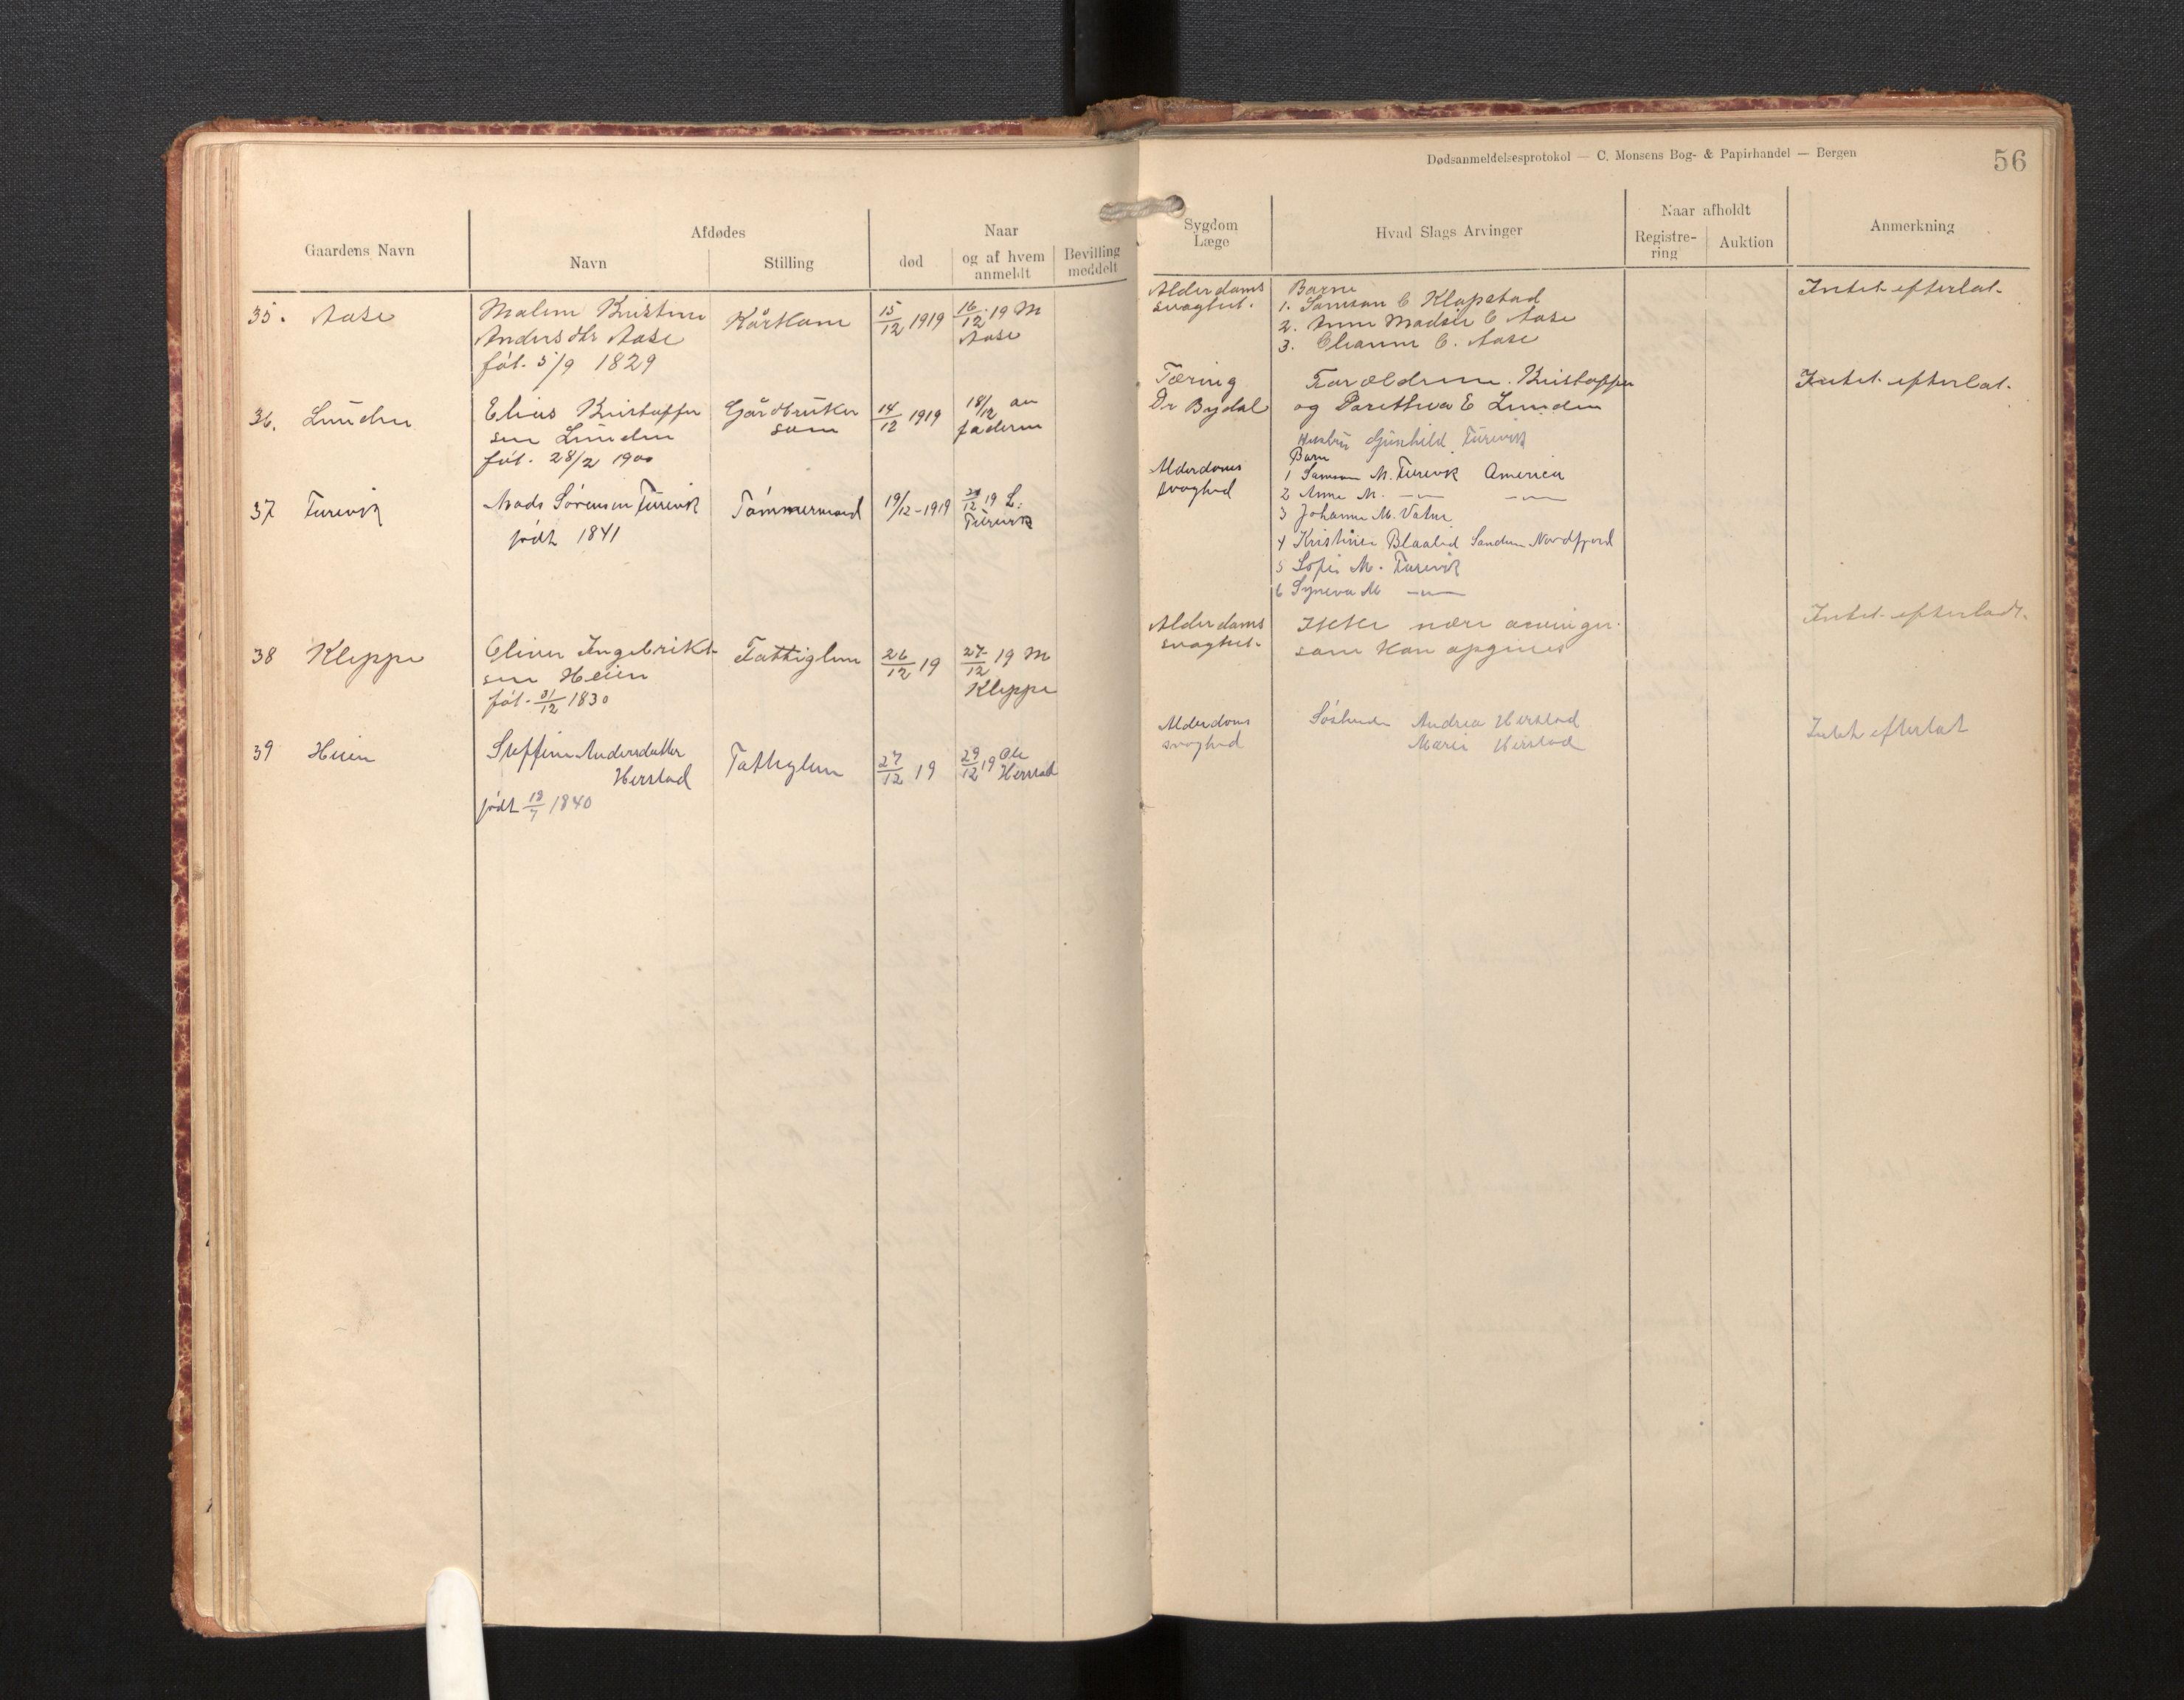 Dødsanmeldelsesprotokol — C. Monsens Bog- & Papirhandel — Bergen
56
Gaardens Navn
Afdødes
Navn
Stilling
Naar
død
og af hvem anmeldt
Bevilling meddelt
Sygdom Læge
Hvad Slags Arvinger
Naar afholdt
Registrering
Auktion
Anmerkning
35. Aase
Malene Kristine
Andersdtr Aase
føt. 5/9 1829
Kårkone
15/12 1919
16/12 19 M
Aase
Alderdoms
svaghet.
Barne
1. Samson C Klopstad
2. Anne Madsle C Aase
3. C. Aase
Intet efterlat.
36. Lunden
Elias Kristoffer
sen Lunden
føt. 28/2 1900
Gårdbruker
søn
14/12 1919
18/12 av
faderen
Tæring
Dr Bydal
Foræeldrene. Kristoffer
og E Lunden
Intet efterlat.
37 Turevik
Mads Sørensen Turevik
født 1841
Tømmermand
19/12-1919
12 19 L:
Turevik
Alderdoms
svaghed
Hustru Gunhild Turevik
Barn
1 Samson M. Turevik America
2 Anne M. —"— —"—
3 Johanne M. Vatne
4 Kristine Blaalid Sanden Nordfjord
5 Sofie M. Turevik
6 Syneva M —"—
38 Kleppe
Oliver Ingebrikt
sen Heien
føt. 31/12 1830
Fattiglem
26/12 19
27/12 19 M
Kleppe
Alderdoms
svaghet.
Ikke nære arvinger
som kan opgives
Intet efterladt.
39 Heien
Steffine Andersdatter
Herstad
født 18/7 1840
Fattiglem
27/12 19
29/12 19 Ole
Herstad
Alderdoms
svaghed
Søskende Andrea Herstad
Marie Herstad
Intet efterlat